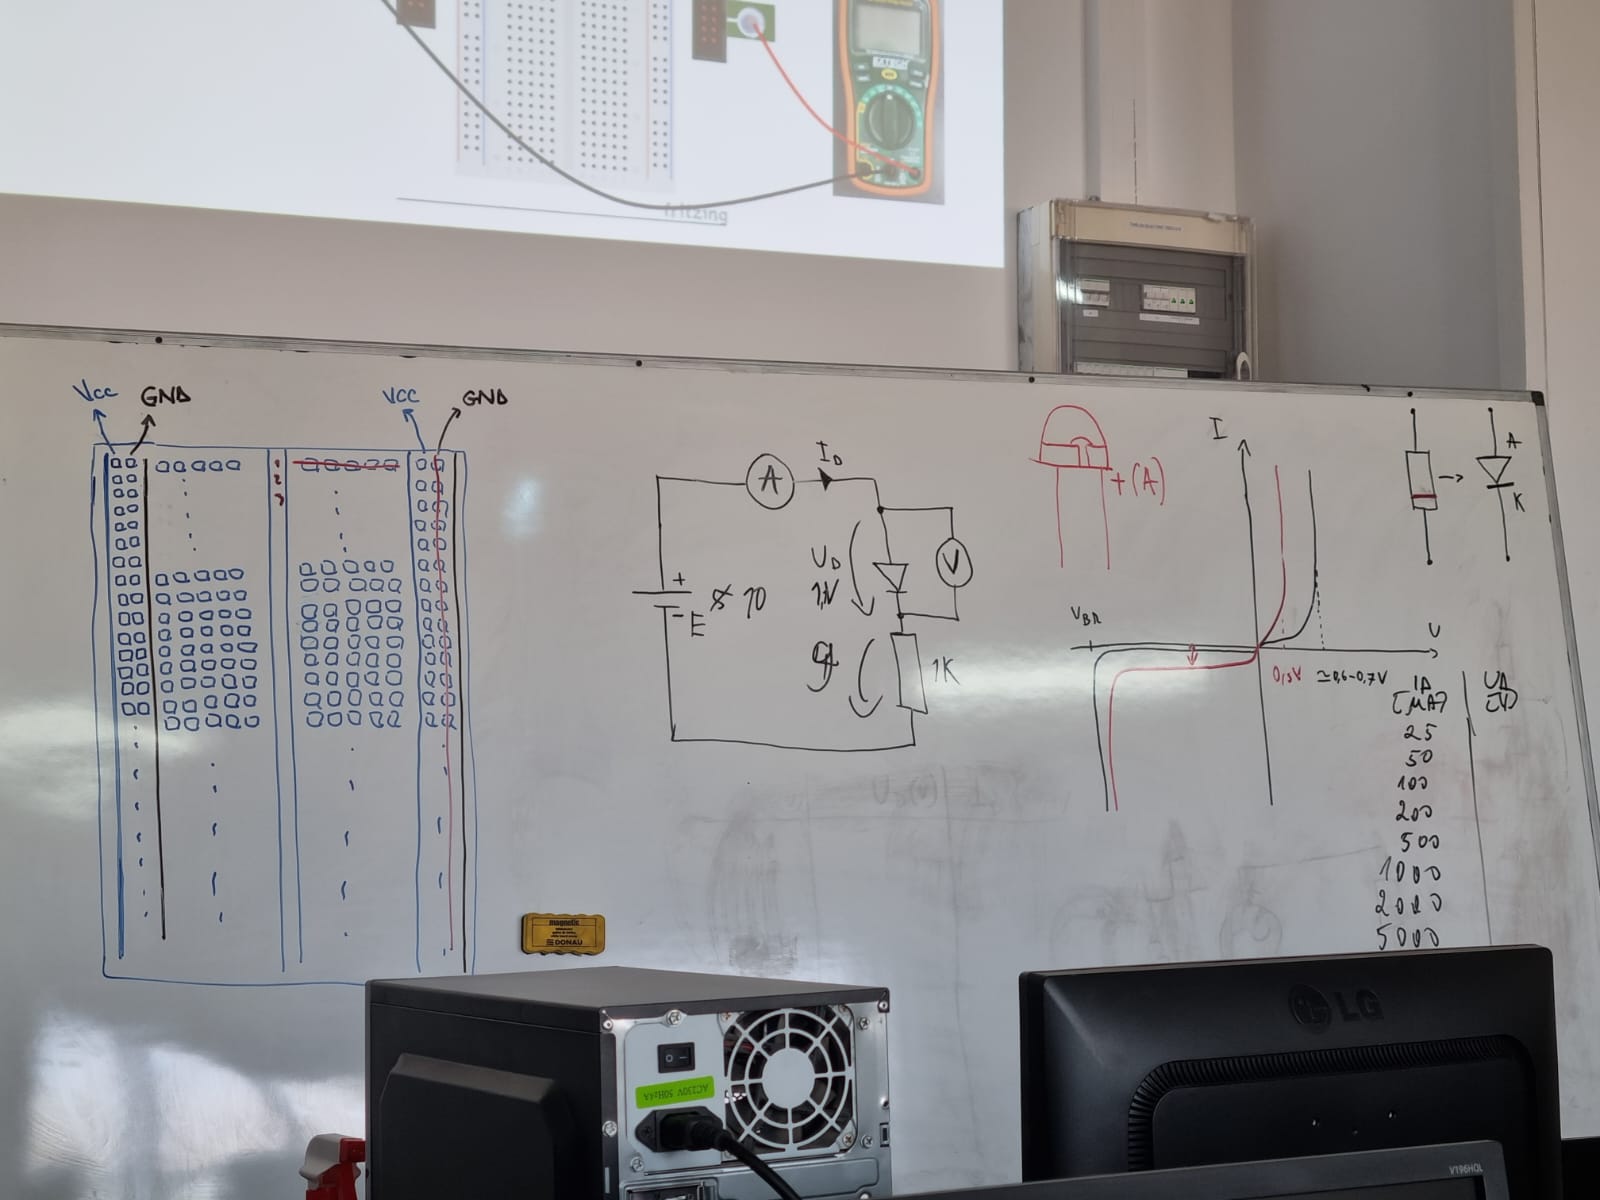 EXTECH
fritzing
Vcc
GND
VCC
GND
1
2
3
A
I_D
+
-
E
10
U_D
V
1K
+(A)
I
V_BR
U
0,3V
≃0,6-0,7V
A
K
[μA]
25
50
100
200
500
1000
2000
5000
magnetic
DONAU
AC230V 50Hz4A
LG
V196HQL